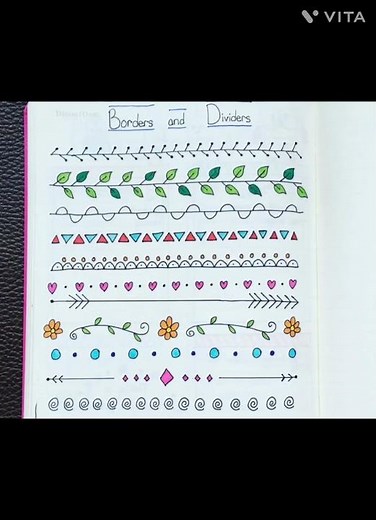 VITA
Borders and Dividers